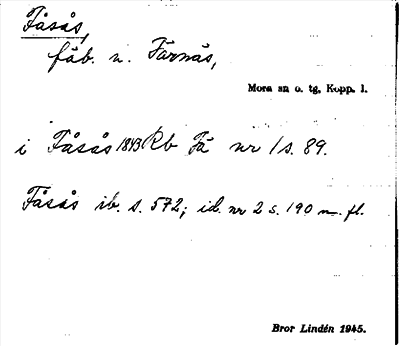 Fåsås,
fäb. n. Färnäs,
Mora sn o. tg, Kopp. l.
i Fåsås 1843 Rb Fä nr 1 s. 89.
Fåsås ib. s. 572; id. nr 2 s. 190 m. fl.
Bror Lindén 1945.